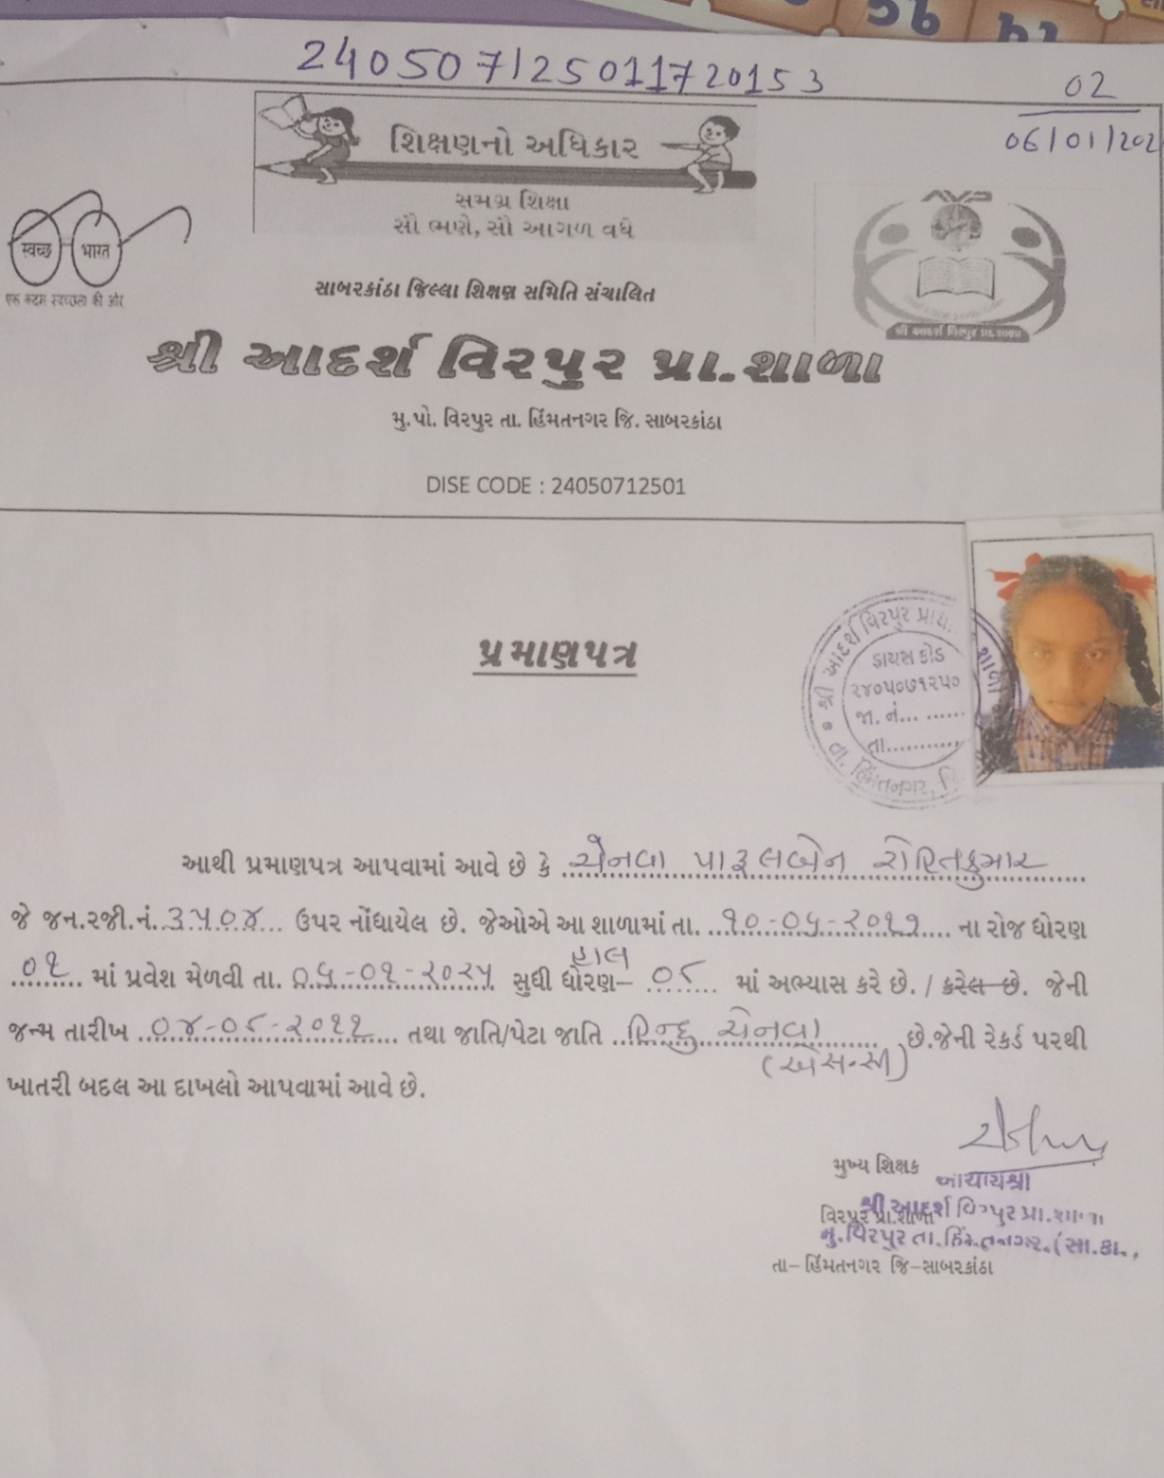 240507125011720153
02
06/01/202
શિક્ષણનો અધિકાર
સમગ્ર શિક્ષા
સૌ ભણે, સૌ આગળ વધે
स्वच्छ भारत
एक कदम स्वच्छता की ओर
સાબરકાંઠા જિલ્લા શિક્ષણ સમિતિ સંચાલિત
શ્રી આદર્શ વિરપુર પ્રા.શાળા
મુ.પો. વિરપુર તા. હિંમતનગર જિ. સાબરકાંઠા
DISE CODE : 24050712501
પ્રમાણપત્ર
શ્રી આદર્શ વિરપુર શાળા
ડાયસ કોડ
૨૪૦૫૦૭૧૨૫૦
જા. નં.........
તા...........
તા. હિંમતનગર,
આથી પ્રમાણપત્ર આપવામાં આવે છે કે ચેનવા પારૂલબેન રોહિતકુમાર
જે જન.રજી.નં. ૩૫૦૪ ઉપર નોંધાયેલ છે. જેઓએ આ શાળામાં તા. ૧૦-૦૫-૨૦૧૭ ના રોજ ધોરણ
હાલ
૦૧ માં પ્રવેશ મેળવી તા. ૦૬-૦૧-૨૦૨૫ સુધી ધોરણ– ૦૮ માં અભ્યાસ કરે છે. / કરેલ છે. જેની
જન્મ તારીખ ૦૪-૦૮-૨૦૧૧ તથા જાતિ/પેટા જાતિ હિન્દુ ચેનવા છે.જેની રેકર્ડ પરથી
(એસ.સી)
ખાતરી બદલ આ દાખલો આપવામાં આવે છે.
મુખ્ય શિક્ષક
આચાર્યશ્રી
વિરપુર પ્રા.શાળા
શ્રી આદર્શ વિરપુર પ્રા.શાળા
મુ.વિરપુર તા.હિંમતનગર.(સા.કાં.,
તા– હિંમતનગર જિ–સાબરકાંઠા